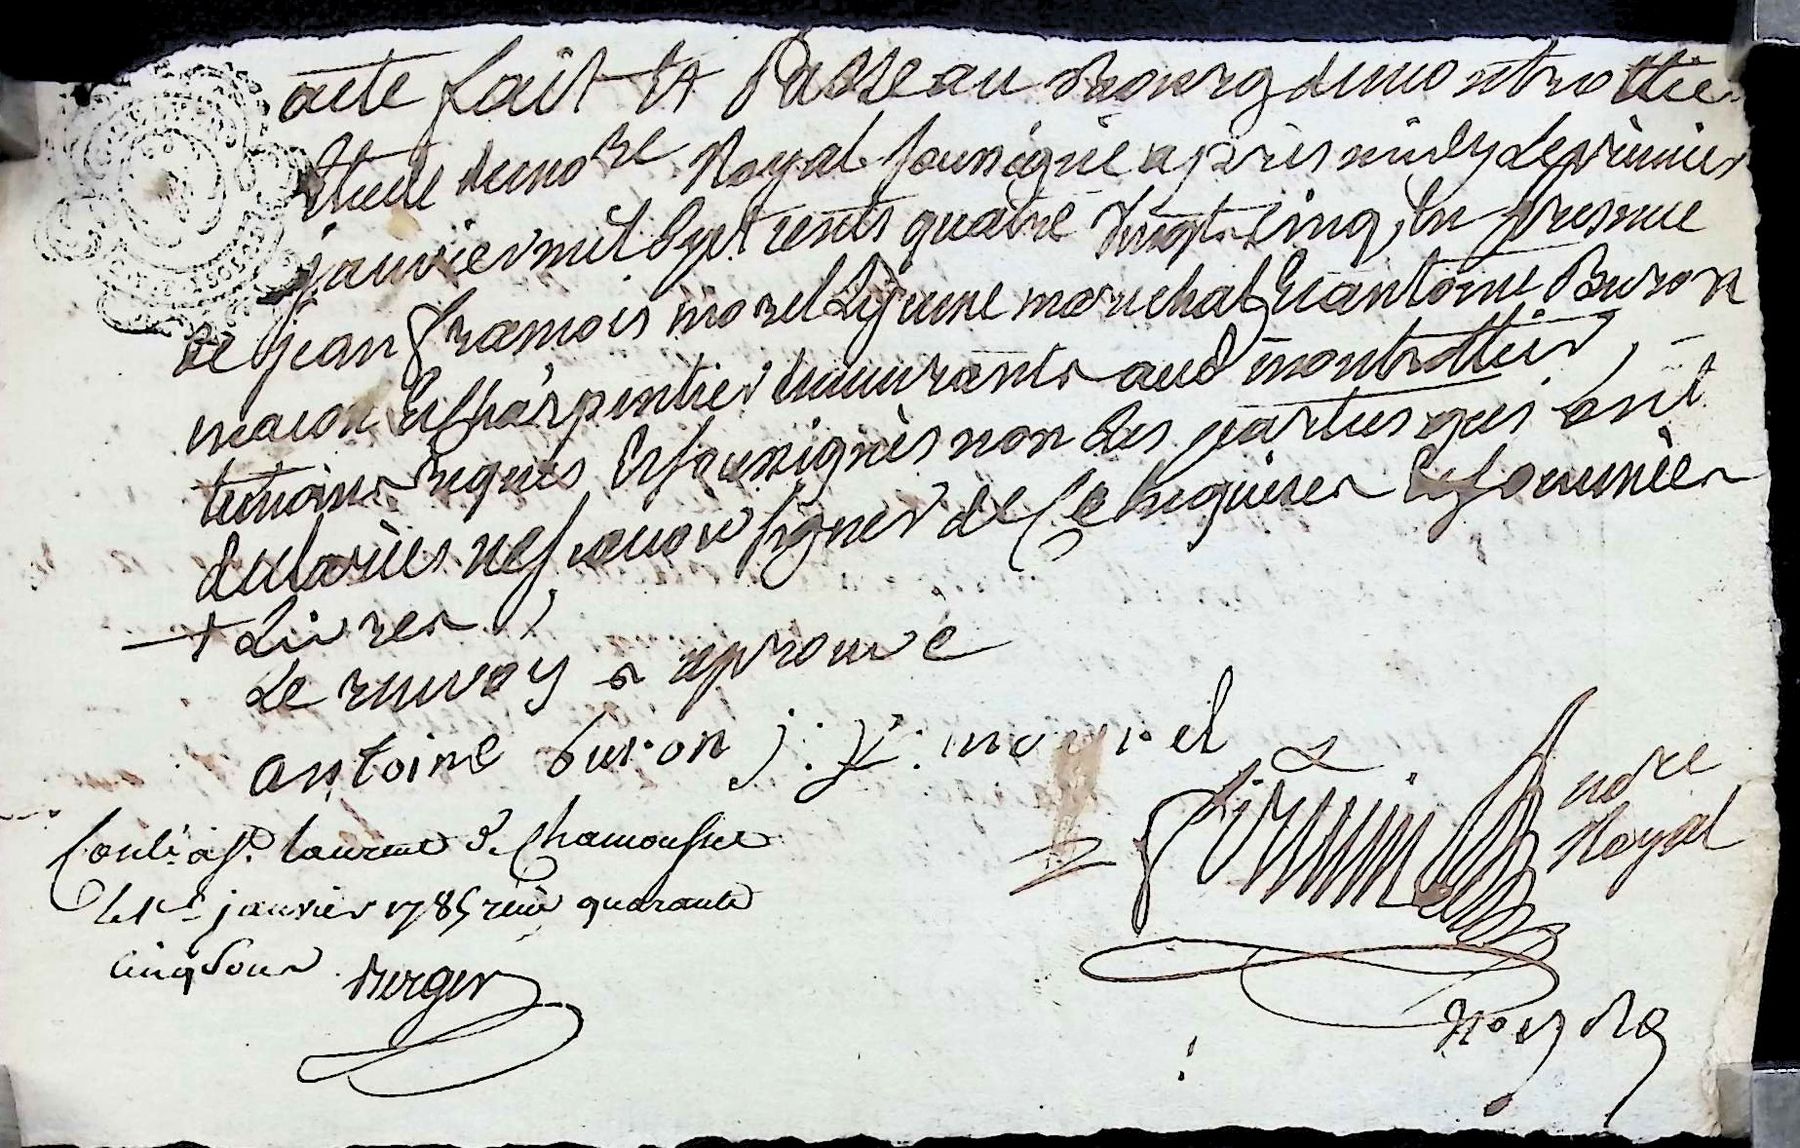 acte fait et Passe au Bourg de montrottier
Etude du no.re Royal sousigné apres midy le premier
janvier mil sept cents quatre vingt cinq, en presence
de jean francois morel le jeune marechal Et antoine Buron
macon Et charpentier demeurants aud montrottier,
temoins requis Et sousignés non les parties qui ont
declarées ne scavoir signer de ce requises Et sommées
+ Livres,
Le renvoy aprouvé
antoine buron j: f: mourel
no.re
Royal
Conlé a st. laurent d. chamousset
le 1er janvier 1785 recu quarante
cinq sous Berger